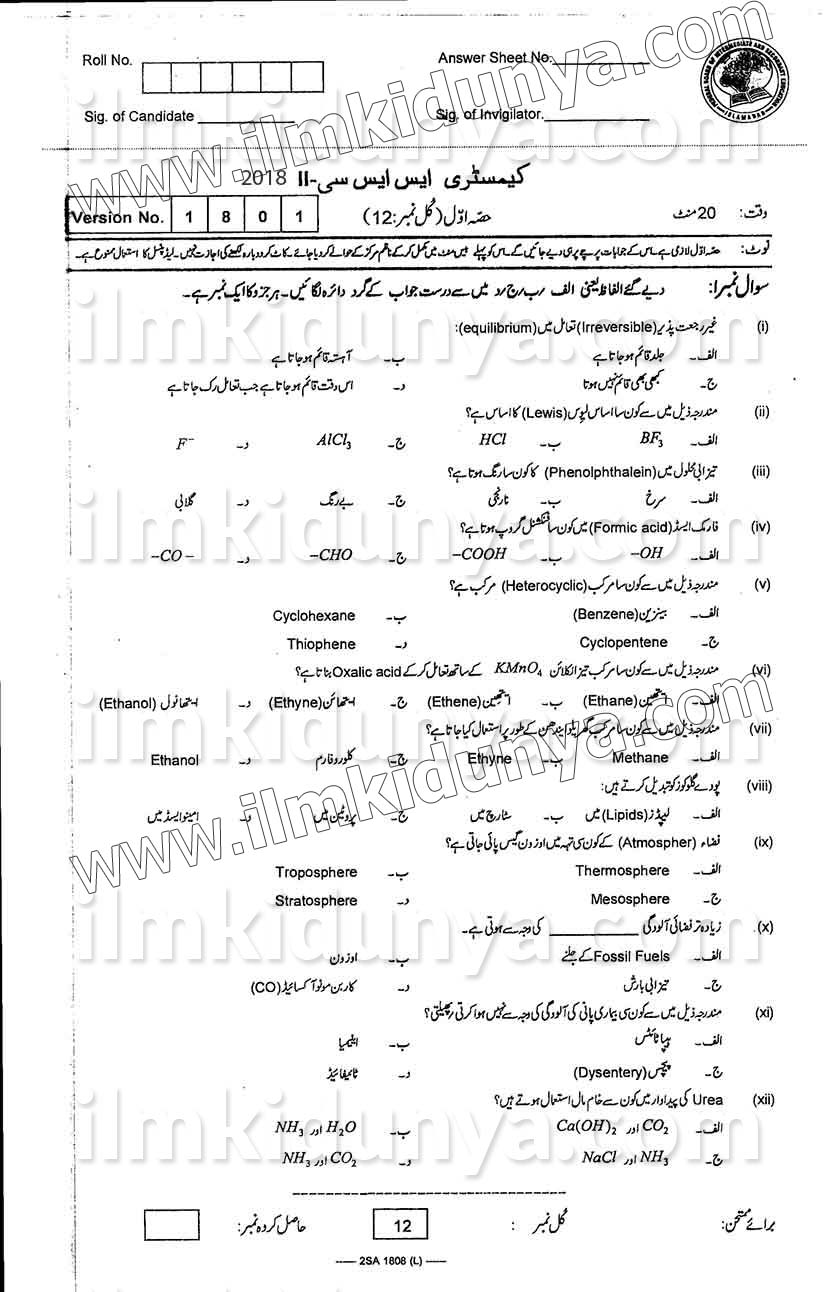 Roll No.
Answer Sheet No.
Sig. of Candidate
Sig. of Invigilator.
FEDERAL BOARD OF INTERMEDIATE AND SECONDARY EDUCATION ISLAMABAD
www.ilmkidunya.com
ilmkidunya.com
کیمسٹری ایس ایس سی-II 2018
وقت: 20 منٹ
حصّہ اوّل (کُل نمبر: 12)
Version No. 1 8 0 1
نوٹ: حصّہ اوّل لازمی ہے۔ اس کے جوابات پرچے پر ہی دیے جائیں گے۔ اس کو پہلے بیس منٹ میں مکمل کر کے ناظم مرکز کے حوالے کر دیا جائے۔ کاٹ کر دوبارہ لکھنے کی اجازت نہیں۔ لیڈ پنسل کا استعمال ممنوع ہے۔
سوال نمبر ا: دیے گئے الفاظ یعنی الف / ب / ج / د میں سے درست جواب کے گرد دائرہ لگائیں۔ ہر جزو کا ایک نمبر ہے۔
(i) غیر رجعت پذیر (Irreversible) تعامل میں (equilibrium):
الف۔ جلد قائم ہو جاتا ہے ب۔ آہستہ قائم ہو جاتا ہے
ج۔ کبھی بھی قائم نہیں ہوتا د۔ اس وقت قائم ہو جاتا ہے جب تعامل رک جاتا ہے
(ii) مندرجہ ذیل میں سے کون سا اساس لیوس (Lewis) کا اساس ہے؟
الف۔ BF₃ ب۔ HCl ج۔ AlCl₃ د۔ F⁻
(iii) تیزابی محلول میں (Phenolphthalein) کا کون سا رنگ ہوتا ہے؟
الف۔ سرخ ب۔ نارنجی ج۔ بے رنگ د۔ گلابی
(iv) فارمک ایسڈ (Formic acid) میں کون سا فنکشنل گروپ ہوتا ہے؟
الف۔ –OH ب۔ –COOH ج۔ –CHO د۔ –CO–
(v) مندرجہ ذیل میں سے کون سا مرکب (Heterocyclic) مرکب ہے؟
الف۔ بینزین (Benzene) ب۔ Cyclohexane
ج۔ Cyclopentene د۔ Thiophene
(vi) مندرجہ ذیل میں سے کون سا مرکب تیز الکلائن KMnO₄ کے ساتھ تعامل کر کے Oxalic acid بناتا ہے؟
الف۔ ایتھین (Ethane) ب۔ ایتھین (Ethene) ج۔ ایتھائن (Ethyne) د۔ ایتھانول (Ethanol)
(vii) مندرجہ ذیل میں سے کون سا مرکب گھریلو ایندھن کے طور پر استعمال کیا جاتا ہے؟
الف۔ Methane ب۔ Ethyne ج۔ کلوروفارم د۔ Ethanol
(viii) پودے گلوکوز کو تبدیل کرتے ہیں:
الف۔ لیپڈز (Lipids) میں ب۔ سٹارچ میں ج۔ پروٹین میں د۔ امینو ایسڈ میں
(ix) فضاء (Atmospher) کے کون سی تہہ میں اوزون گیس پائی جاتی ہے؟
الف۔ Thermosphere ب۔ Troposphere
ج۔ Mesosphere د۔ Stratosphere
(x) زیادہ تر فضائی آلودگی __________ کی وجہ سے ہوتی ہے۔
الف۔ Fossil Fuels کے جلنے ب۔ اوزون
ج۔ تیزابی بارش د۔ کاربن مونو آکسائیڈ (CO)
(xi) مندرجہ ذیل میں سے کون سی بیماری پانی کی آلودگی کی وجہ سے نہیں ہوا کرتی / پھیلتی؟
الف۔ ہیپاٹائٹس ب۔ اینیمیا
ج۔ پیچس (Dysentery) د۔ ٹائیفائیڈ
(xii) Urea کی پیداوار میں کون سے خام مال استعمال ہوتے ہیں؟
الف۔ CO₂ اور Ca(OH)₂ ب۔ H₂O اور NH₃
ج۔ NH₃ اور NaCl د۔ CO₂ اور NH₃
برائے ممتحن: کُل نمبر: 12 حاصل کردہ نمبر:
2SA 1808 (L)